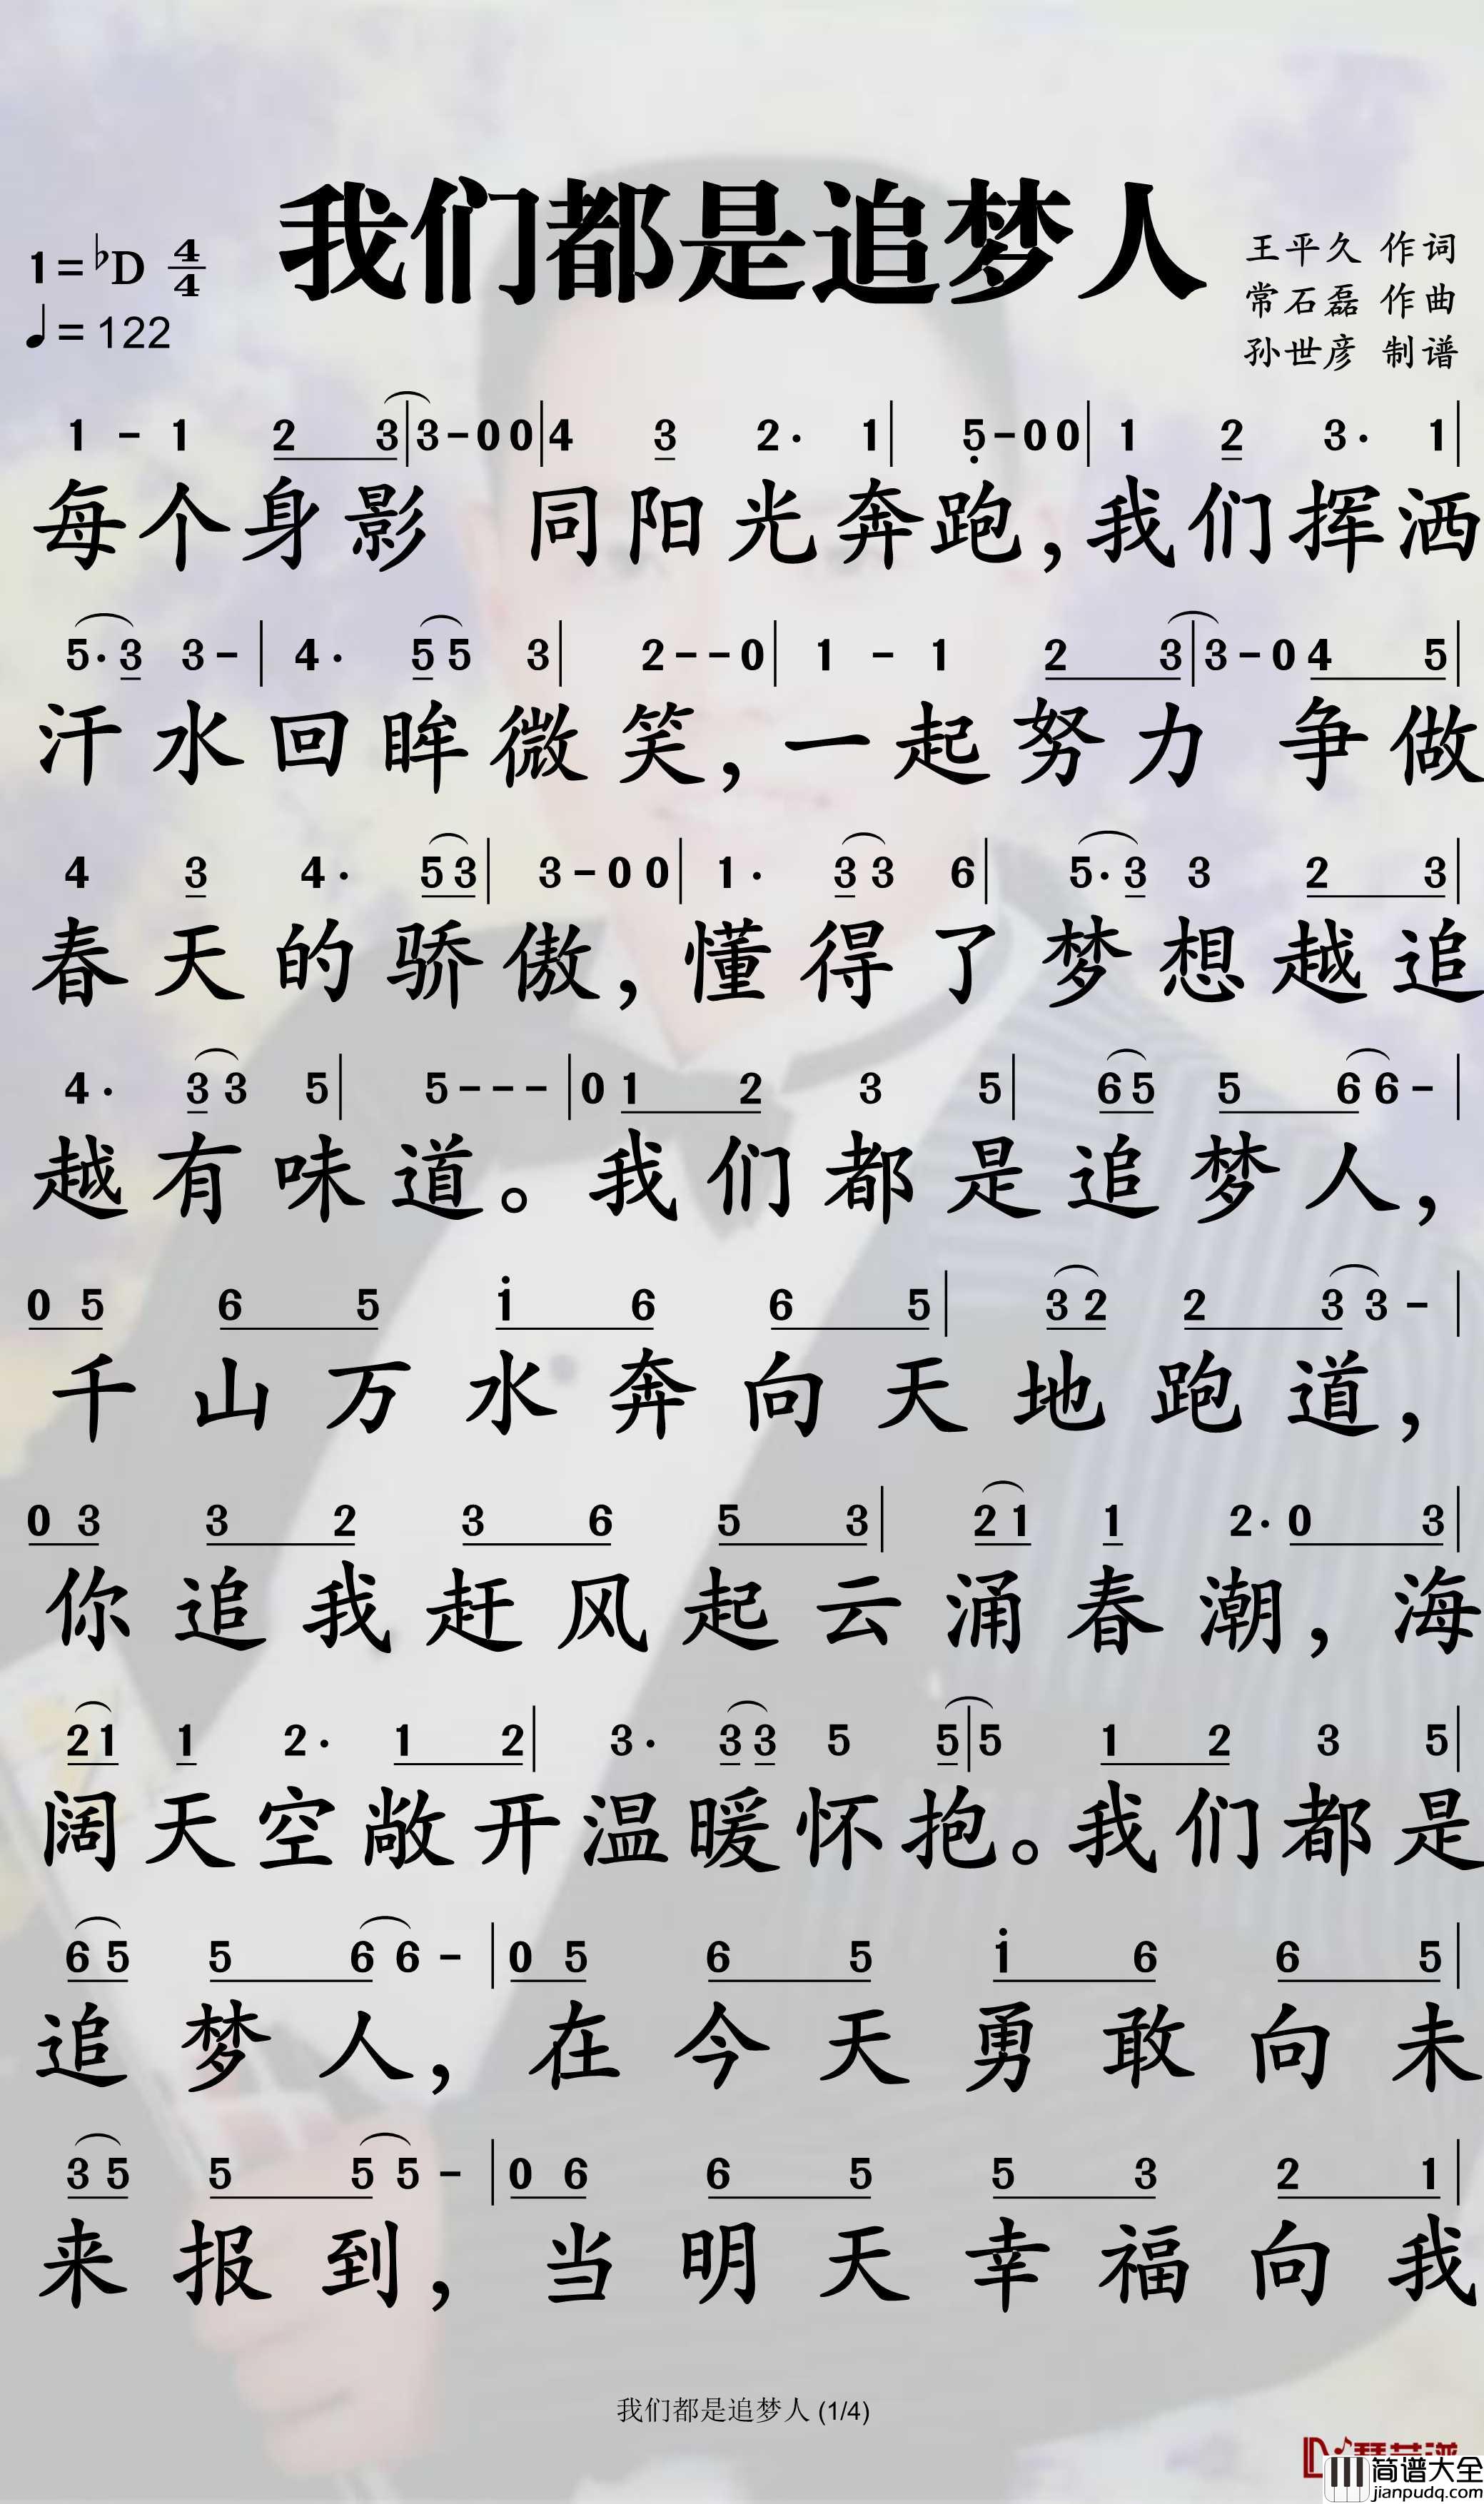 我们都是追梦人
1=♭D 4/4
♩=122
王平久 作词
常石磊 作曲
孙世彦 制谱
1 - 1 2 3|3-00|4 3 2· 1|5-00|1 2 3· 1|
每个身影 同阳光奔跑,我们挥洒
5·3 3-|4· 55 3|2--0|1 - 1 2 3|3-04 5|
汗水回眸微笑,一起努力 争做
4 3 4· 53|3-00|1· 33 6|5·3 3 2 3|
春天的骄傲,懂得了梦想越追
4· 33 5|5---|01 2 3 5|65 5 66-|
越有味道。我们都是追梦人,
05 6 5 i 6 6 5|32 2 33-|
千山万水奔向天地跑道,
03 3 2 3 6 5 3|21 1 2·0 3|
你追我赶风起云涌春潮,海
21 1 2· 1 2|3· 33 5 5|5 1 2 3 5|
阔天空敞开温暖怀抱。我们都是
65 5 66-|05 6 5 i 6 6 5|
追梦人,在今天勇敢向未
35 5 55-|06 6 5 5 3 2 1|
来报到,当明天幸福向我
我们都是追梦人 (1/4)
简谱大全
jianpudq.com